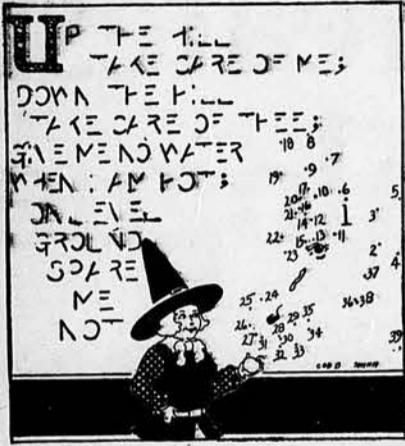 UP THE HILL
TAKE CARE OF ME;
DOWN THE HILL
TAKE CARE OF THEE;
GIVE ME NO WATER
WHEN I AM HOT;
ON LEVEL
GROUND
SPARE
ME
NOT
18 8
7
9
19
17 10 6
5
20 16
21 14 12 3
22 15 13 11
23 2
4
37
25 24
36 38
26 28 29 35
27 31 30 34 39
32 33